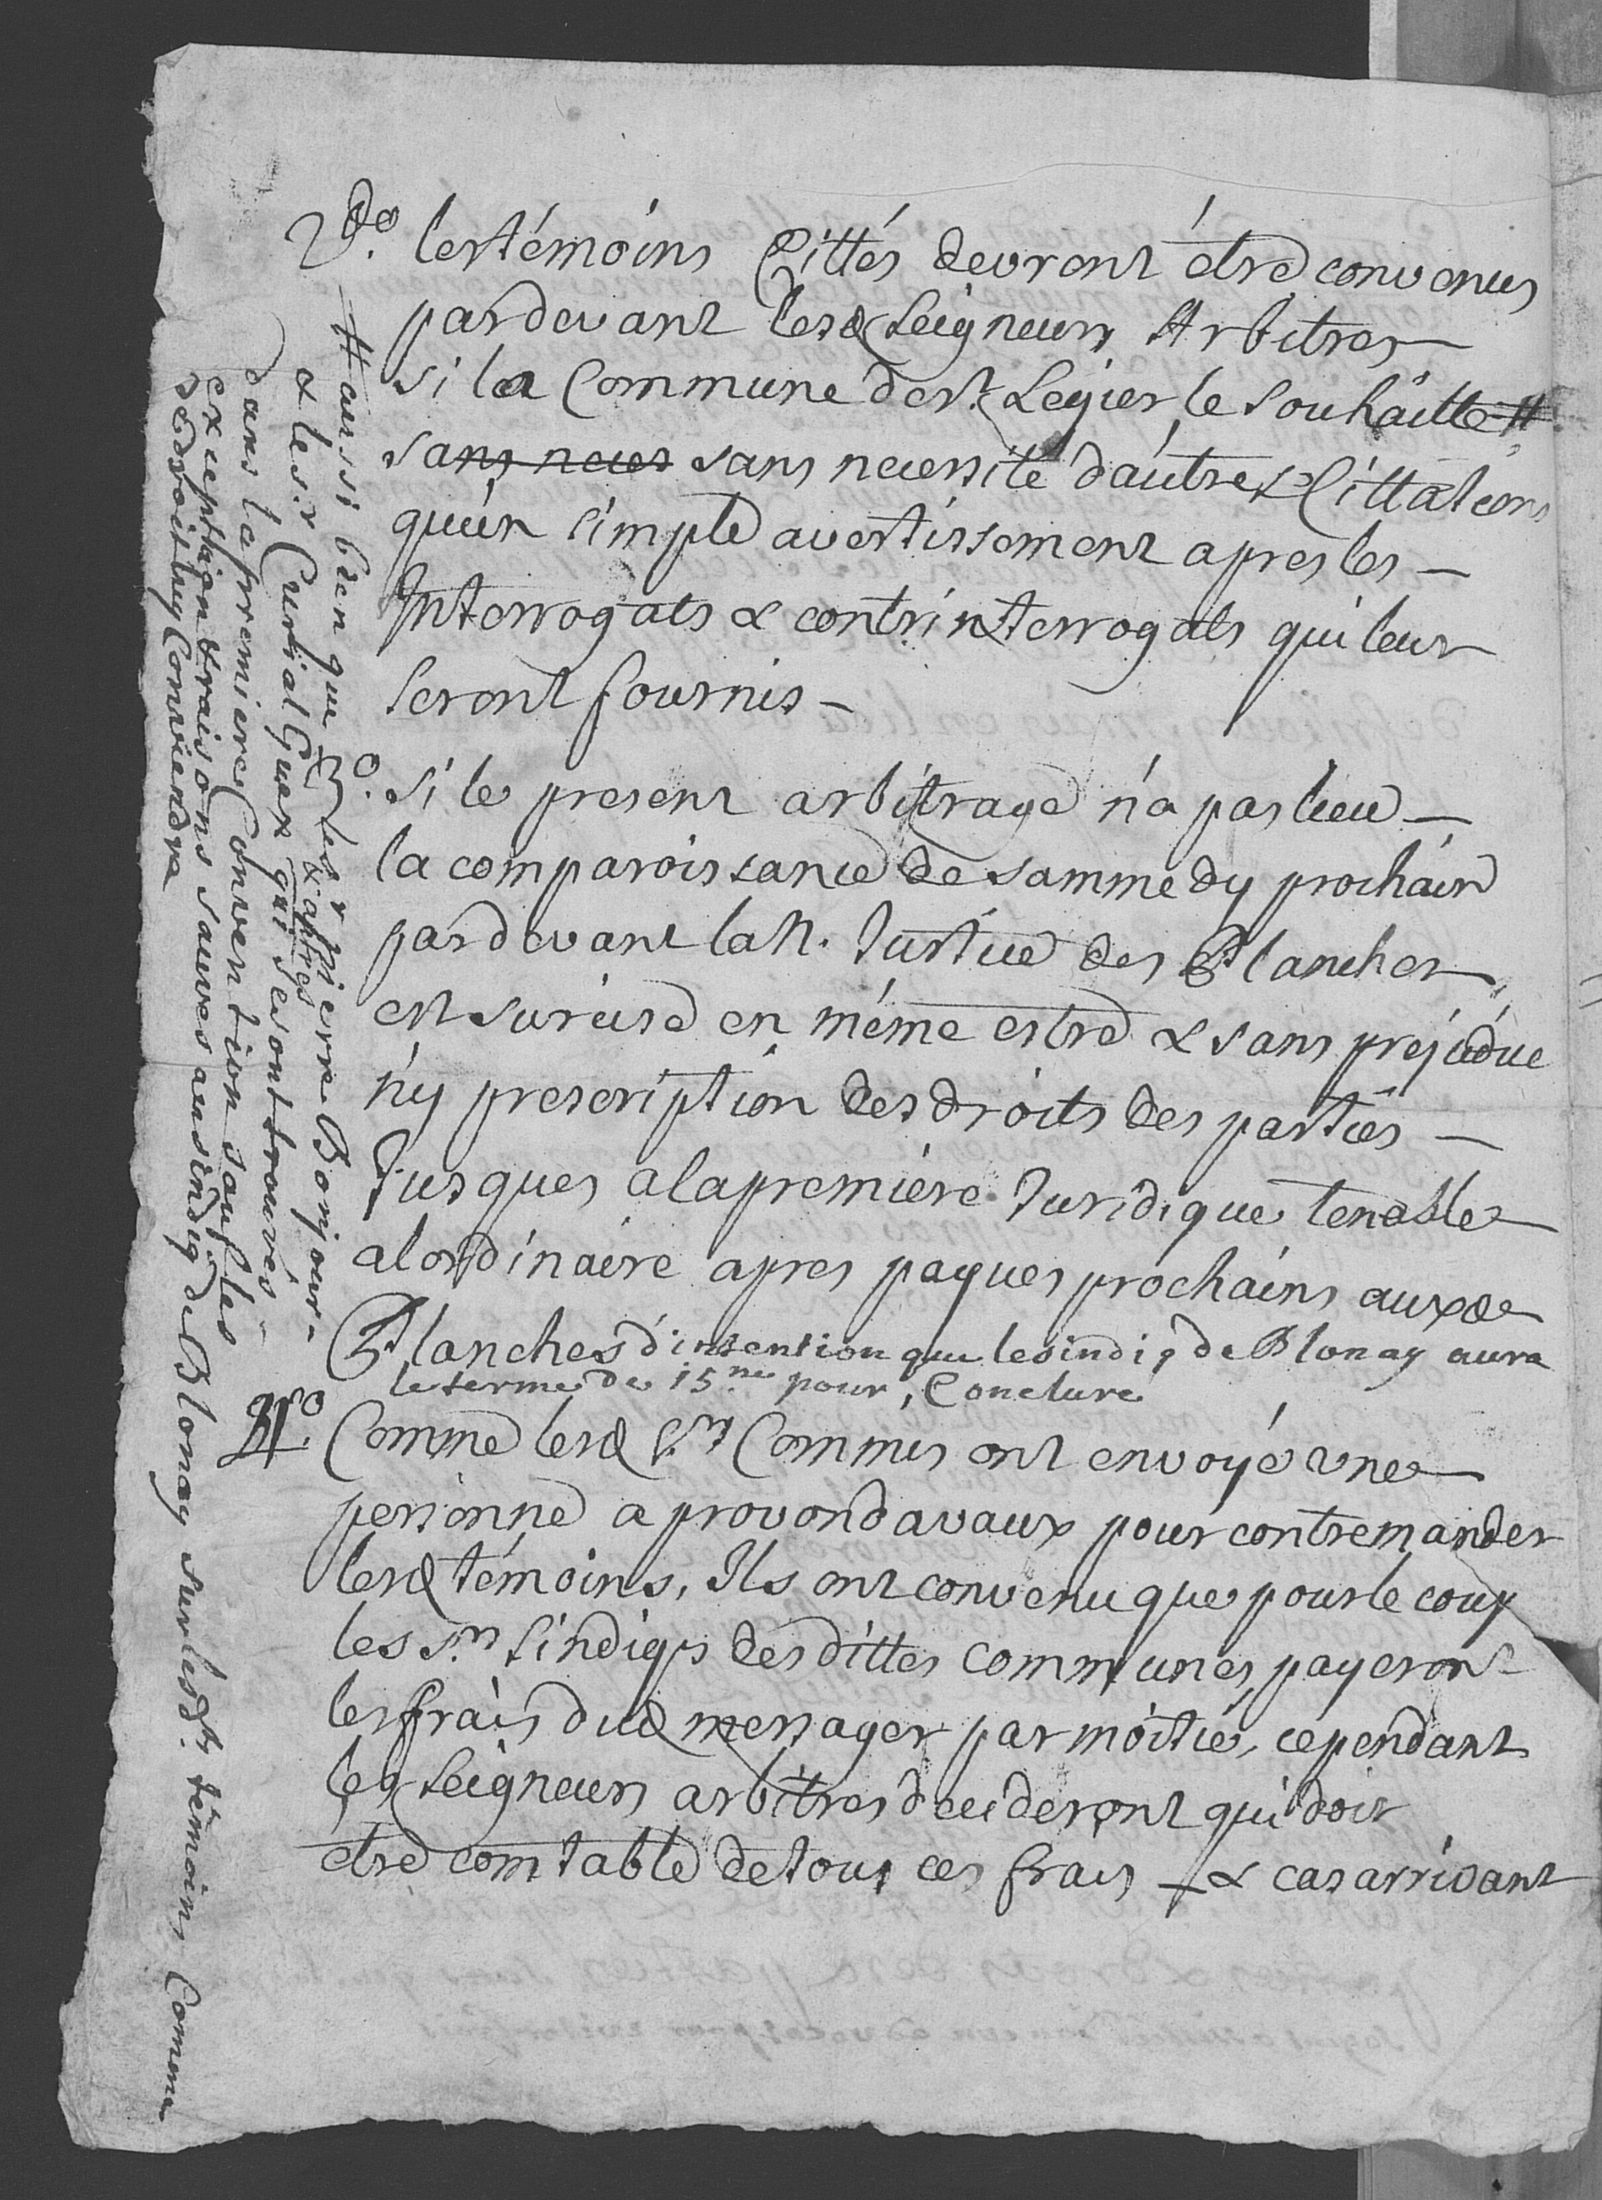 2do. les témoins Cittés devront étre convenus
pardevant lesd Seigneurs Arbitres
si la Commune de st. Legier le souhaitte #
sans neces sans necessité d'autres Cittations
qu'un simple avertissement apres les
Interrogats & contrinterrogats qui leur
seront fournis
3o. si le present arbitrage n'a pas lieu
la comparoissance de sammedy prochain
pardevant la N. Justice des Planches
est surcise en méme estre & sans préjudice
n'y prescription des droits des parties
Jusques a la premiére Juridique tenable
a lordinaire apres paques prochains auxd
Planches d'intention que le sindiq de Blonay aura
le terme de 15.ne pour, Conclure
4to. Comme lesd s.rs Commis ont envoyé une
personne a provondavaux pour contremander
lesd témoins, Ils ont convenu que pour le coup
les s.rs sindiqs desdittes communes payeront
les frais dud messager par moitié, cependant
les Seigneurs arbitres decideront qui doit
étre comtable de tous ces frais & cas arrivant
# aussi bien que les.r Pierre Bonjour
& les.r Curial Guex & aütres qui se sont trouvés
dans la premiere Convention sauf les
exceptions & raisons sauves au sindiq de Blonay sur lesd.ts témoins Comme
de droit luy Conviendra